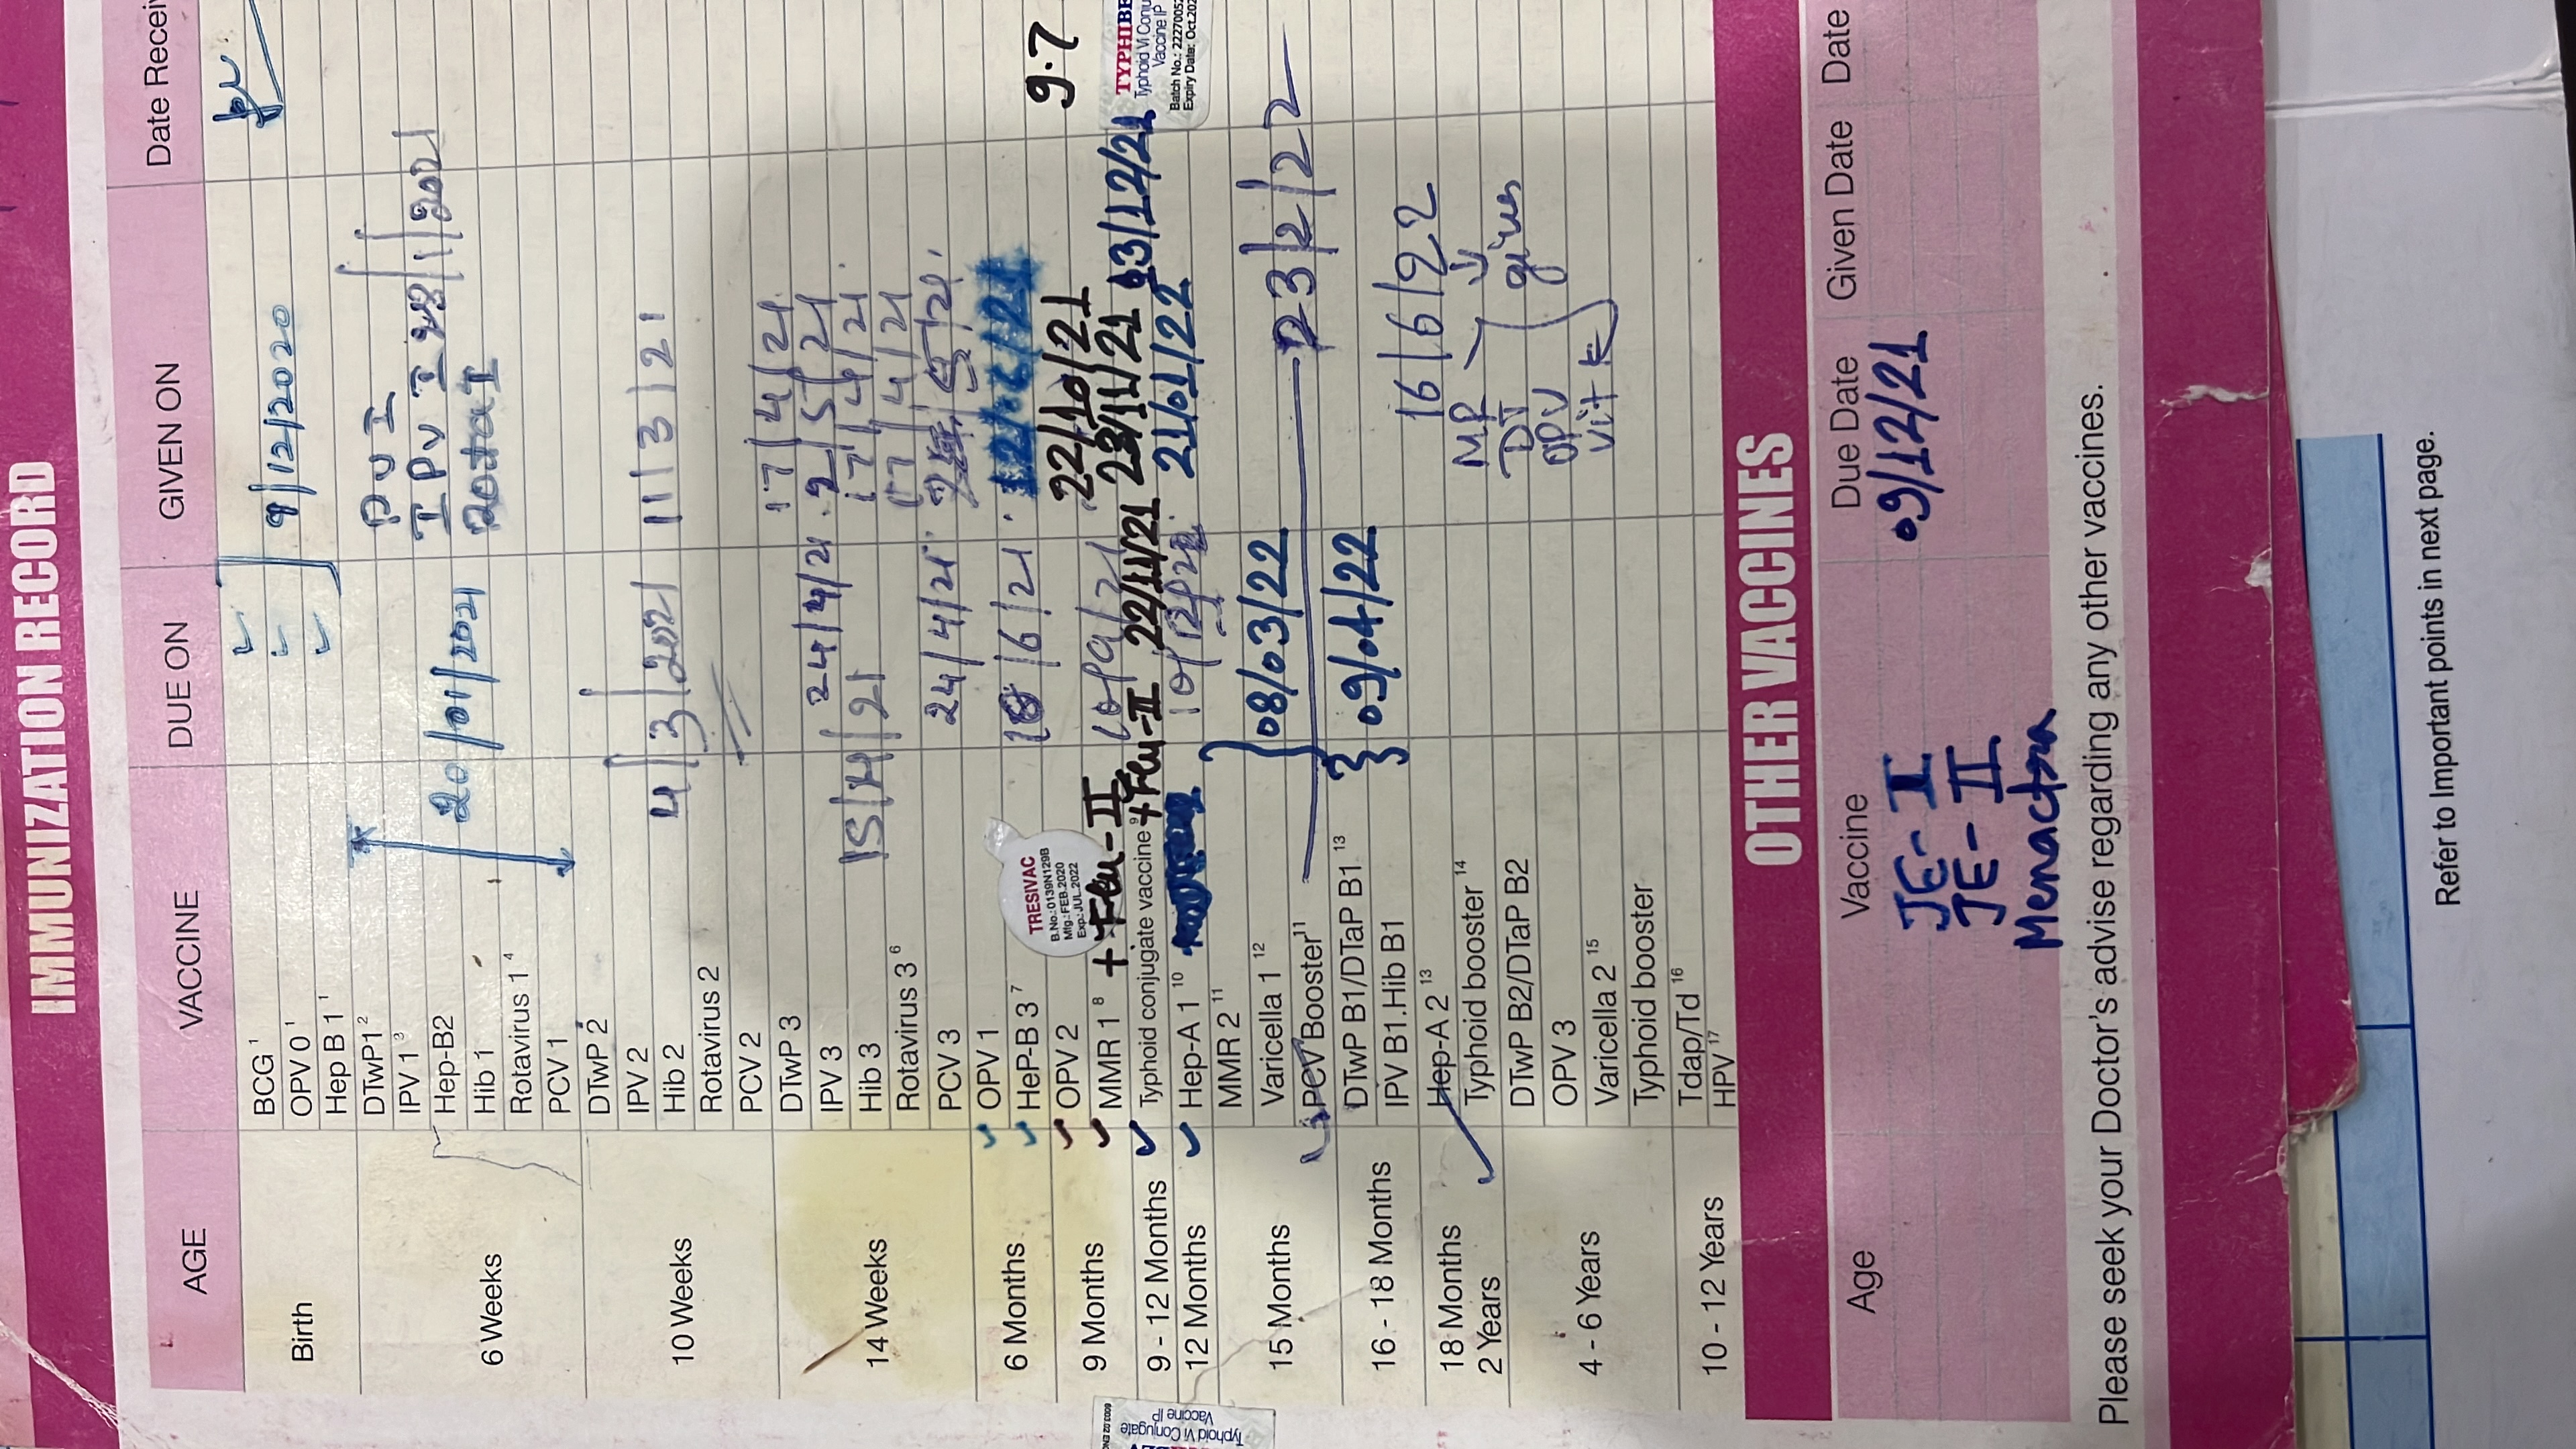 IMMUNIZATION RECORD
AGE VACCINE DUE ON GIVEN ON Date Recei
Birth BCG 1
OPV 0 1
Hep B 1 1
9/12/2020
6 Weeks DTwP1 2
IPV 1 3
Hep-B2 20/01/2021
Hib 1
Rotavirus 1 4
PCV 1
10 Weeks DTwP 2
IPV 2
Hib 2 4/3/2021 11/3/21
Rotavirus 2
PCV 2
14 Weeks DTwP 3 17/4/21
IPV 3 24/4/21 2/5/21
Hib 3 17/4/21
Rotavirus 3 6 17/4/21
PCV 3 24/4/21
6 Months OPV 1
HeP-B 3 7 /6/21
9 Months OPV 2 22/10/21 9.7
TRESIVAC
B.No.:0139N129B
Mfg.:FEB.2020
Exp.:JUL.2022
MMR 1 8 + Flu-II
9 - 12 Months Typhoid conjugate vaccine 9 + Flu-II 22/11/21 23/11/21
12 Months Hep-A 1 10 21/01/22
TYPHIBE
Typhoid Vi Conju
Vaccine IP
Batch No.: 2227005
Expiry Date: Oct.202
15 Months MMR 2 11
Varicella 1 12 08/03/22
PCV Booster 11 23/2/22
16 - 18 Months DTwP B1/DTaP B1 13 09/04/22
IPV B1.Hib B1
18 Months Hep-A 2 13 16/6/22
2 Years Typhoid booster 14 MR
4 - 6 Years DTwP B2/DTaP B2 DT given
OPV 3 OPV
Varicella 2 15 Vit
Typhoid booster
10 - 12 Years Tdap/Td 16
HPV 17
Typhoid Vi Conjugate
Vaccine IP
OTHER VACCINES
Age Vaccine Due Date Given Date Date
JE-I 09/12/21
JE-II
Menactra
Please seek your Doctor's advise regarding any other vaccines.
Refer to Important points in next page.